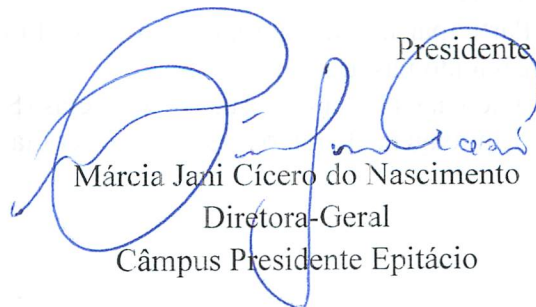 Presidente
Márcia Jani Cícero do Nascimento
Diretora-Geral
Câmpus Presidente Epitácio